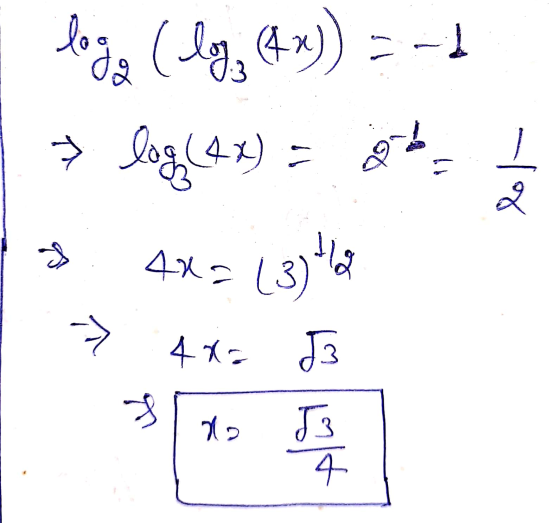 log₂ (log₃ (4x)) = -1
⇒ log₃(4x) = 2⁻¹ = 1/2
⇒ 4x = (3)^1/2
⇒ 4x = √3
⇒ x = √3/4